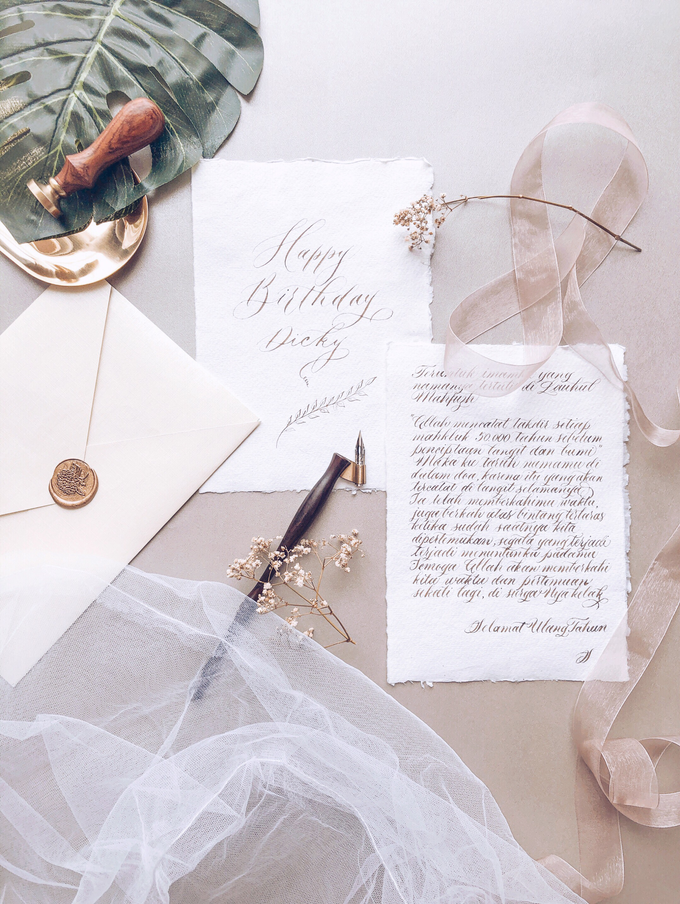 Happy
Birthday
Dicky
Teruntuk imamku yang
namanya tertulis di Lauhul
Mahfuzh
Allah mencatat takdir setiap
makhluk 50.000 tahun sebelum
penciptaan langit dan bumi
Maka ku taruh namamu di
dalam doa, karena itu yang akan
tercatat di langit selamanya
Ia telah memberkahimu waktu,
juga berkah atas bintang terberas
ketika sudah saatnya kita
dipertemukan, segala yang terjadi
terjadi menuntunku padamu
Semoga Allah akan memberkahi
kita waktu dan pertemuan
sekali lagi, di surga-Nya kelak
Selamat Ulang Tahun